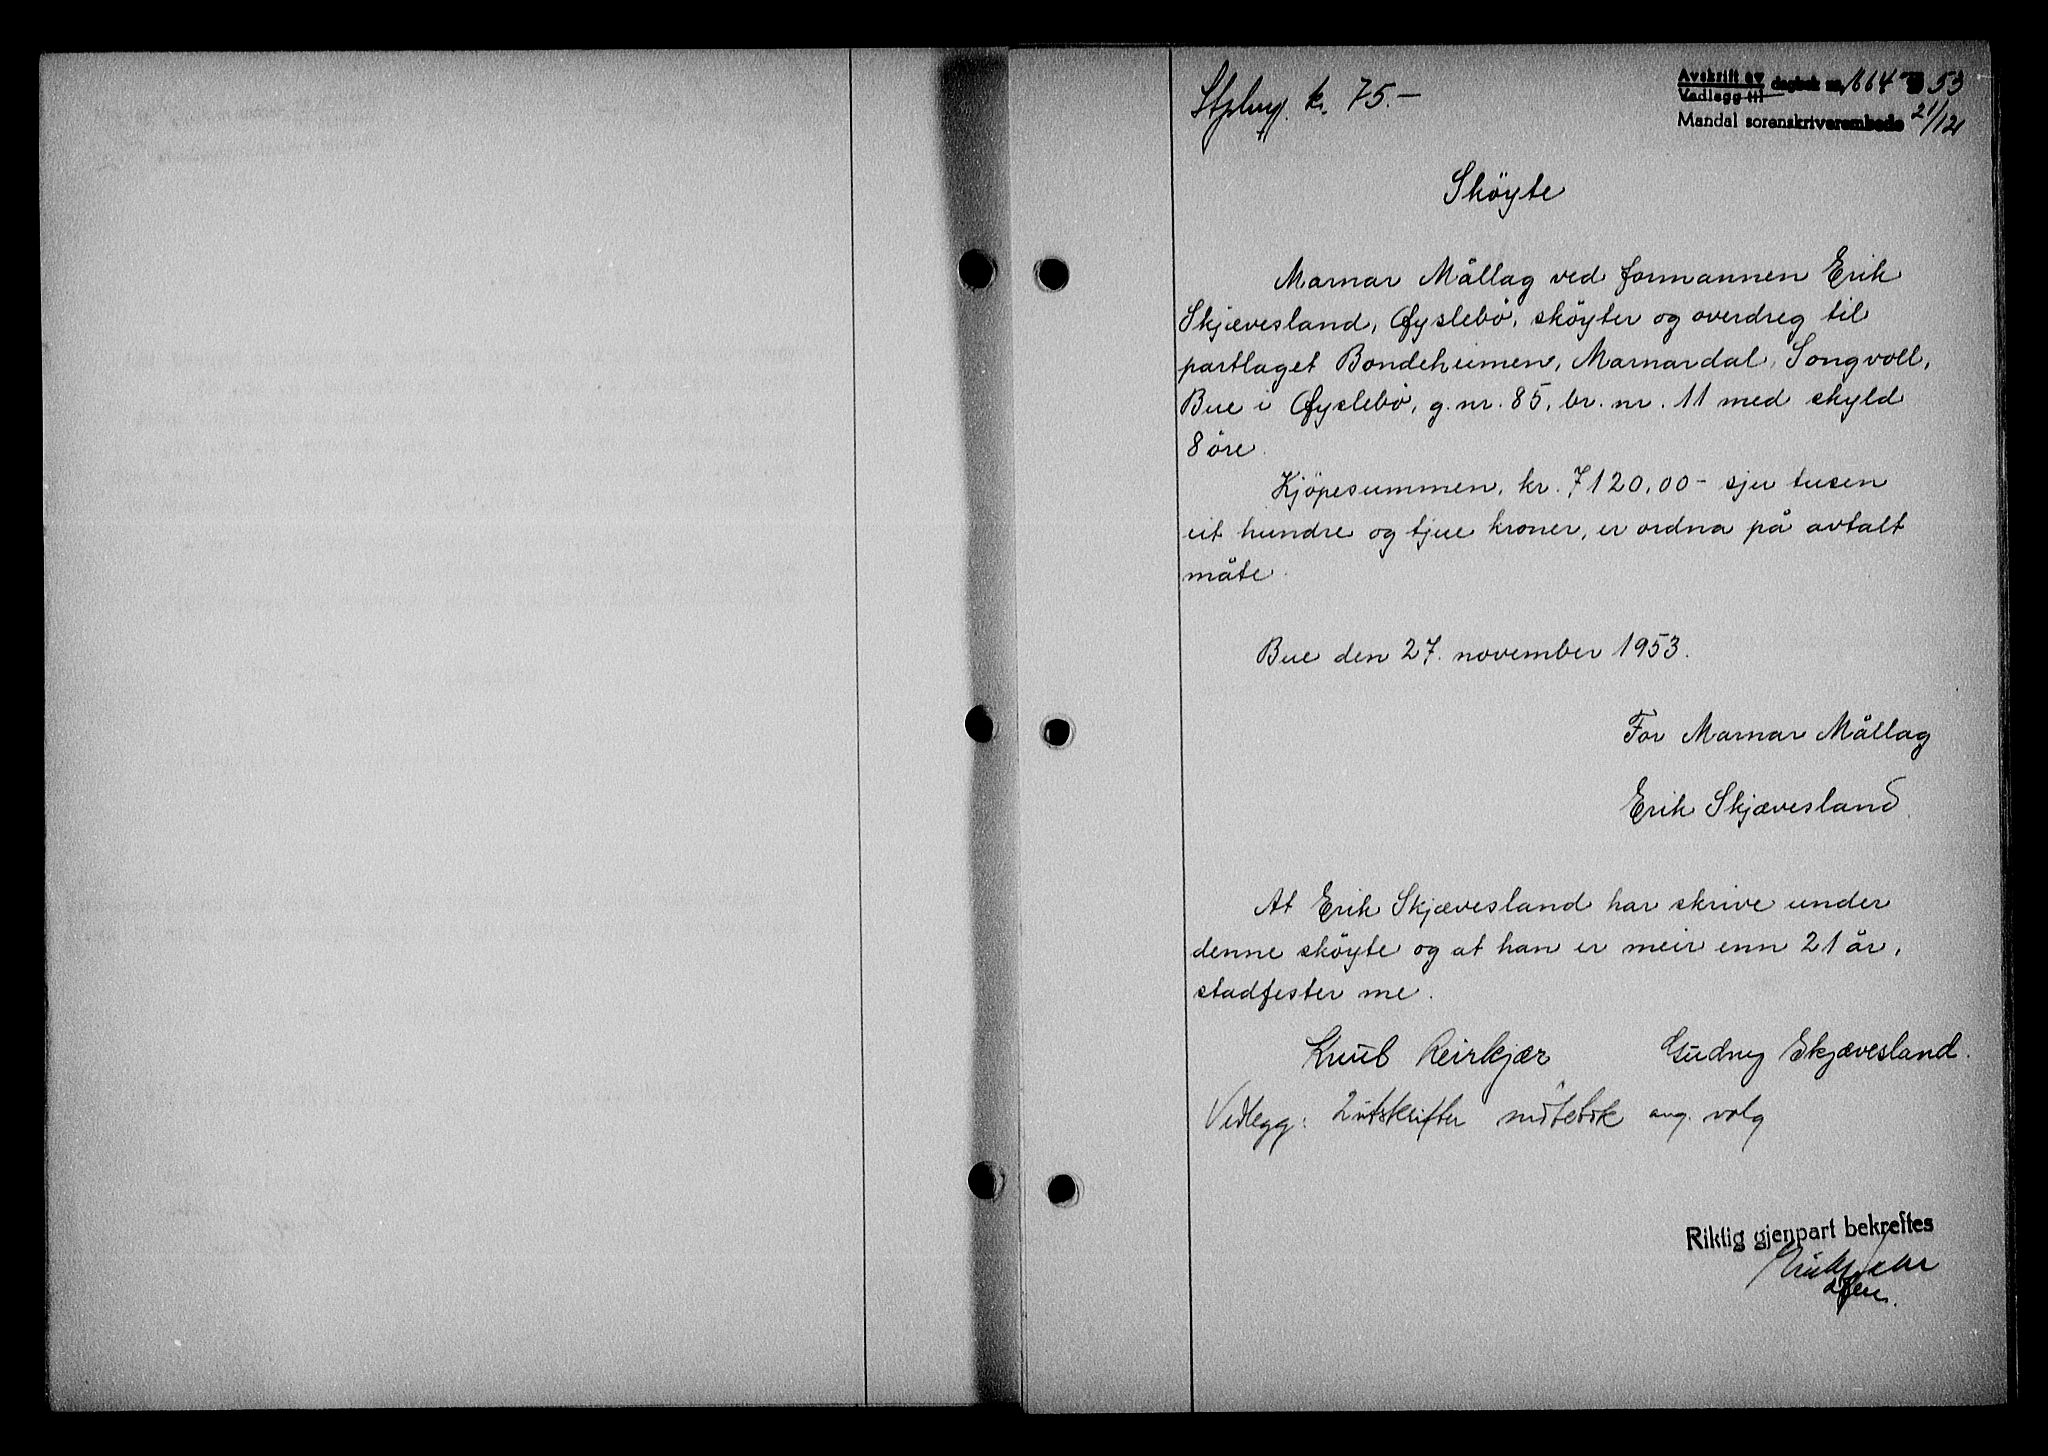 Stplmrk. kr. 75.-
Avskrift av
Vedlegg til dagbok nr. 1664 53
Mandal sorenskriverembede 21/12
Sköyte
Marnar Mållag ved formannen Erik
Skjævesland, Øyslebö, sköyter og overdreg til
partlaget Bondeheimen, Marnardal, Songvoll,
Bue i Øyslebö, g.nr. 85, br. nr. 11 med skyld
8 öre.
Kjöpesummen, kr. 7120,00 - sju tusen
eit hundre og tjue kroner, er ordna på avtalt
måte.
Bue den 27. november 1953.
For Marnar Mållag
Erik Skjævesland.
At Erik Skjævesland har skrive under
denne sköyte og at han er meir enn 21 år,
stadfester me.
Knut Reirkjær Gudny Skjævesland.
Vedlegg: 2 utskrifter mötebok ang. valg
Riktig gjenpart bekreftes